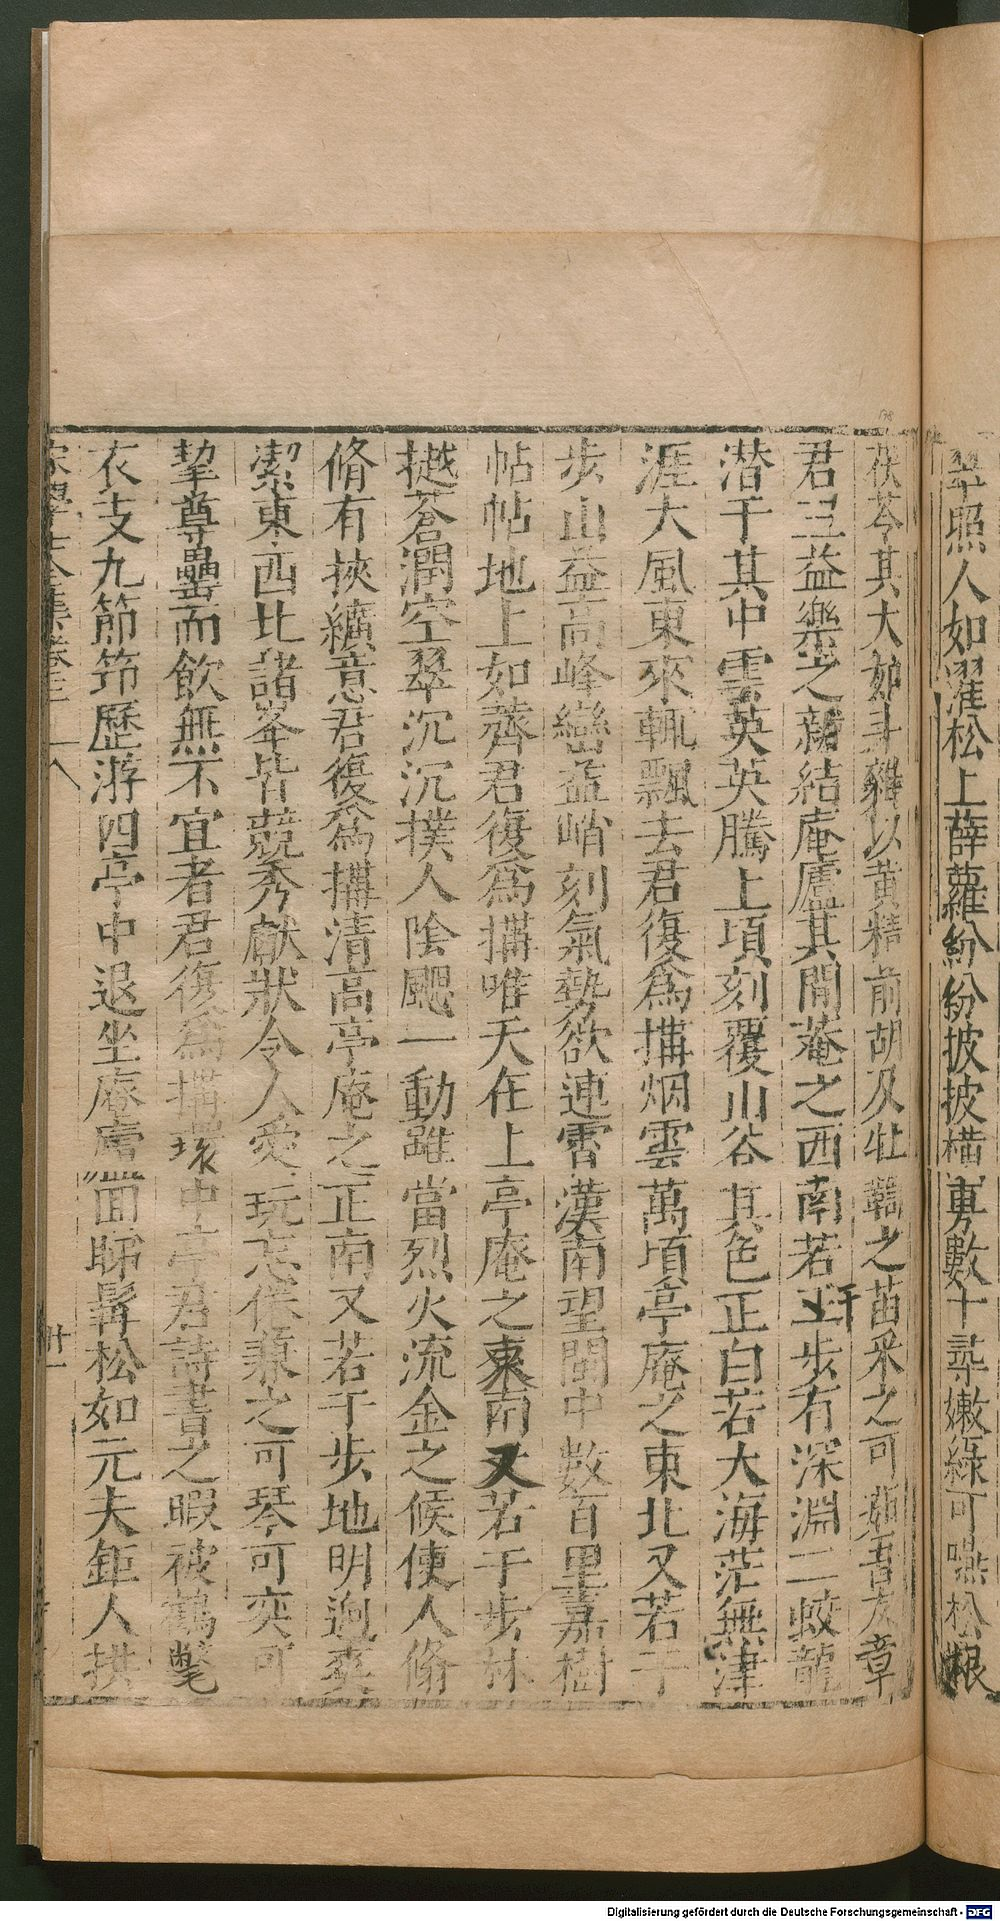 翠照人如濯松上薜蘿紛紛披披橫敷數十尋嫩綠可嚥松根
茯苓其大如斗雜以黄精前胡及牡鞠之苗采之可茹吾友章
君三益樂之新結庵廬其間菴之西南若干步有深淵二蛟龍
潜于其中雲英英騰上頃刻覆山谷其色正白若大海茫無津
涯大風東來輒飄去君復爲搆烟雲萬頃亭庵之東北又若干
步山益高峰巒益峭刻氣勢欲連霄漢南望閩中數百里嘉樹
帖帖地上如薺君復爲搆唯天在上亭庵之東南又若干步林
樾蒼潤空翠沉沉撲人陰颸一動雖當烈火流金之候使人翛
翛有挾纊意君復爲搆清高亭庵之正南又若干步地明迥爽
潔東西北諸峯皆競秀獻狀令人愛玩忘倦兼之可琴可奕可
挈尊罍而飲無不宜者君復爲搆環中亭君詩書之暇被鶴氅
衣支九節筇歷游四亭中退坐庵廬回睇髯松如元夫鉅人拱
宋學士集卷三 十八
廿一
Digitalisierung gefördert durch die Deutsche Forschungsgemeinschaft - DFG